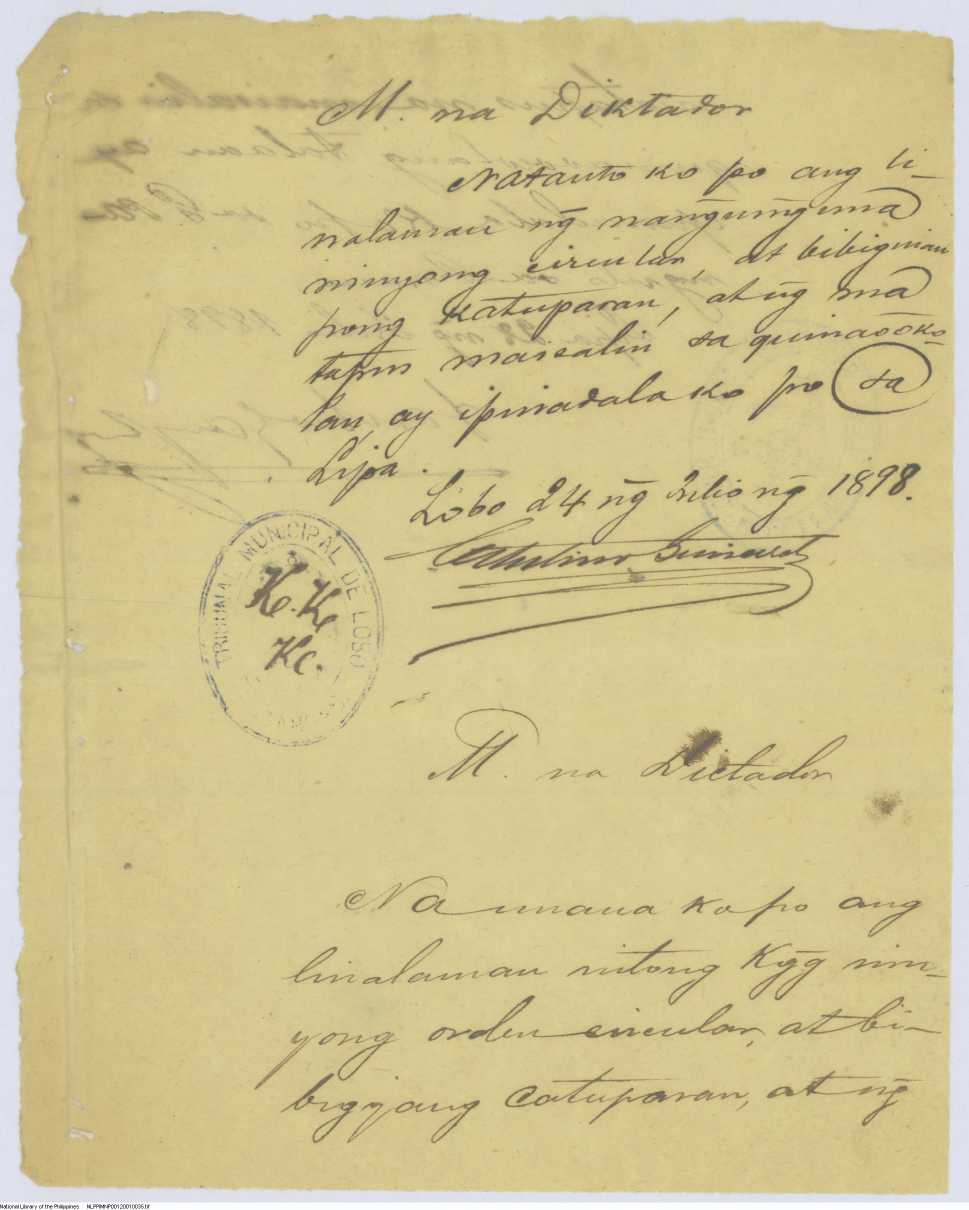 M. na Diktador
Natanto ko po ang li-
nalaman ng̃ nang̃ung̃una
ninyong circular, at bibiguian
pong katuparan, at ng̃ ma
tapus maisalin sa quinaoóko-
lan, ay ipinadala ko po sa
Lipa.
Lobo 24 ng̃ Julio ng̃ 1898.
TRIBUNAL MUNICIPAL DE LOBO
K. K.
Kc.
M. na Dictador
Na unaua ko po ang
linalaman nitong Kgg nin-
yong orden circular, at bi-
bigyang catuparan, at ng̃
National Library of the Philippines NLPPIMNP00120010035.tif